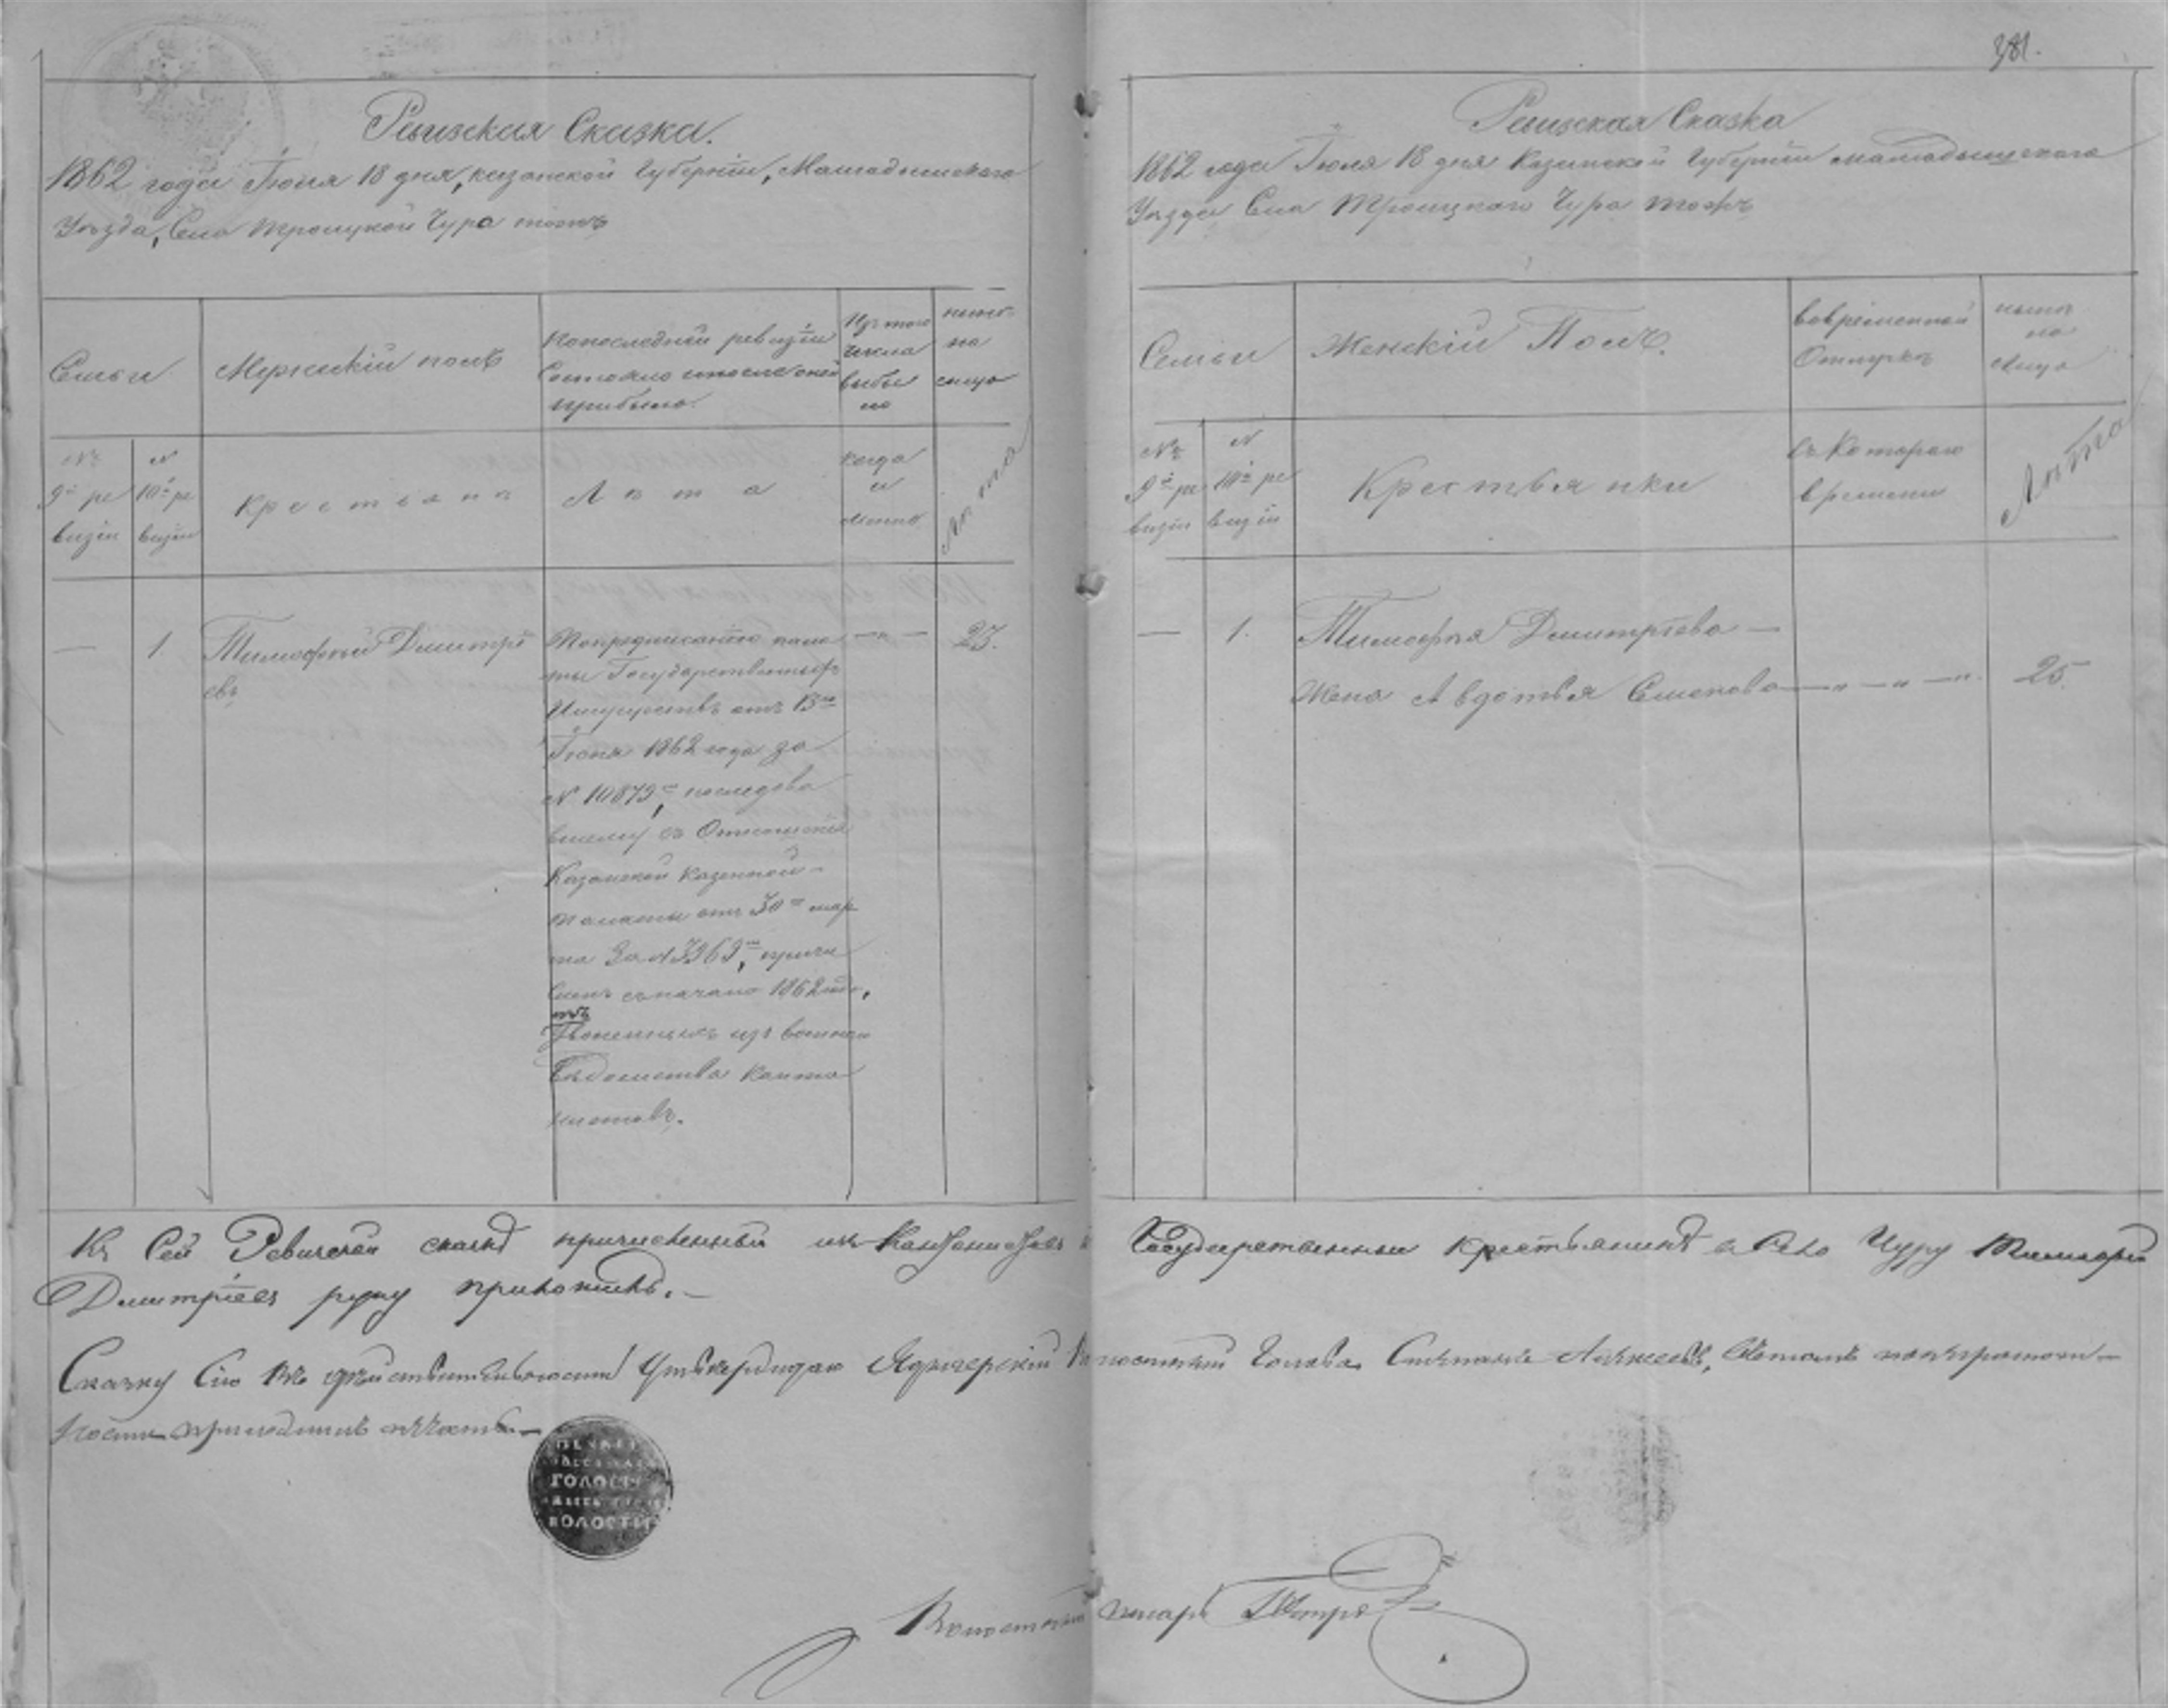 381.
Ревизская Сказка.
1862 года Іюня 18 дня, казанской губерніи, Мамадышскаго
Уѣзда, Села Троицкой Чура тожъ
Семьи
Мужескій полъ
По последней ревизіи
Состояло и после оной
прибыло.
Изъ того
числа
выбы
ло
ныне
на
лицо
№
9й ре
визіи
№
10й ре
визіи
Крестьяне
Лѣта
когда
и
Лѣта
—
1.
Тимофей Дмитрі
евъ
По предписанію пала
ты Государственныхъ
Имуществъ отъ 13го
Іюня 1862 года за
№ 10873м, последова
вшему съ Отношенія
Казанской Казенной
палаты отъ 30го мар
та За № 3269м, причи
сленъ съ начала 1862 года,
изъ военнаго
Ведомства Канто
нистовъ.
— " —
23.
Ревизская Сказка
1862 года Іюля 18 дня Казанской Губерніи мамадышскаго
Уѣзда Села Троицкаго Чура тожъ
Семьи
Женскій Полъ.
во временной
Отлучкѣ
ныне
на
Лицо
№
9й ре
визіи
№
10й ре
визіи
Крестьянки
съ Котораго
времени
Лѣта
—
1.
Тимофея Дмитріева —
Жена Авдотья Семенова — " — " — "
25.
Къ Сей Ревизской сказкѣ причисленный изъ Кантонистовъ в Государственные крестьянинъ в Село Чуру Тимофей
Дмитріевъ руку приложилъ. —
Сказку Сію въ действительности Утверждаю Ядыгерскій Волостной Голова Степанъ Алексеевъ,
печать —
ГОЛОВЫ
ВОЛОСТИ
Волостной писарь Петръ